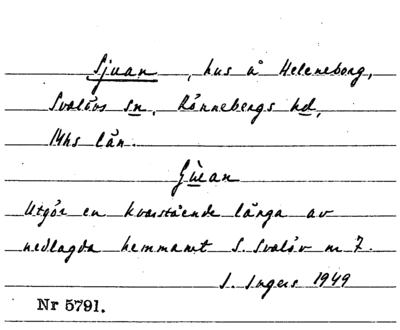 Sjuan , hus å Heleneborg,
Svalövs sn, Rönnebergs hd,
Mhs län.
Utgör en kvarstående länga av
nedlagda hemmanet S. Svalöv nr 7.
I. Ingers 1949
Nr 5791.